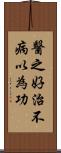 醫之好治不
病以為功